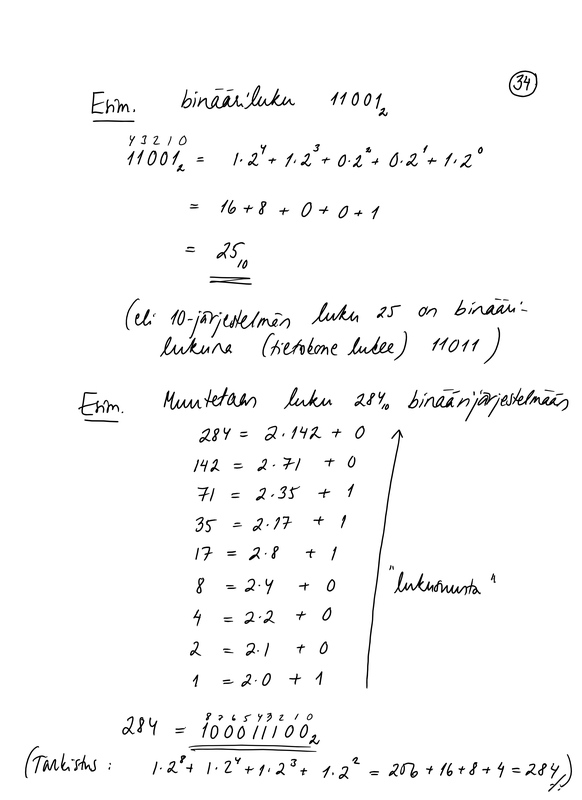 34
Esim. binääriluku 11001₂
4 3 2 1 0
11001₂ = 1·2⁴ + 1·2³ + 0·2² + 0·2¹ + 1·2⁰
= 16 + 8 + 0 + 0 + 1
= 25₁₀
(eli 10-järjestelmän luku 25 on binääri-
lukuna (tietokone lukee) 11011)
Esim. Muutetaan luku 284₁₀ binäärijärjestelmään
284 = 2·142 + 0
142 = 2·71 + 0
71 = 2·35 + 1
35 = 2·17 + 1
17 = 2·8 + 1
8 = 2·4 + 0
4 = 2·2 + 0
2 = 2·1 + 0
1 = 2·0 + 1
"lukusuunta"
8 7 6 5 4 3 2 1 0
284 = 100011100₂
(Tarkistus: 1·2⁸ + 1·2⁴ + 1·2³ + 1·2² = 256 + 16 + 8 + 4 = 284)